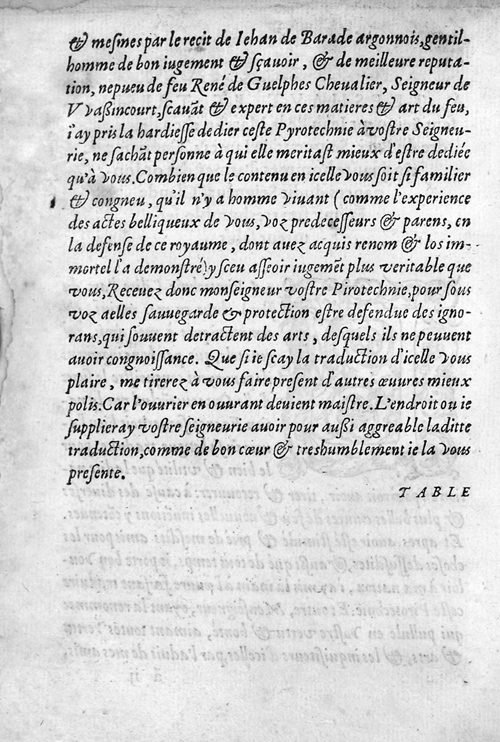 & mesmes par le recit de Iehan de Barade argonnois, gentil-
homme de bon iugement & sçauoir, & de meilleure reputa-
tion, nepueu de feu René de Guelphes Cheualier, Seigneur de
Vvaßincourt, scauãt & expert en ces matieres & art du feu,
i'ay pris la hardiesse dedier ceste Pyrotechnie à vostre Seigneu-
rie, ne sachãt personne à qui elle meritast mieux d'estre dediée
qu'à vous. Combien que le contenu en icelle vous soit si familier
& congneu, qu'il n'y a homme viuant (comme l'experience
des actes belliqueux de vous, voz predecesseurs & parens, en
la defense de ce royaume, dont auez acquis renom & los im-
mortel l'a demonstré) y sceu asseoir iugemẽt plus veritable que
vous, Receuez donc monseigneur vostre Pirotechnie, pour sous
voz aelles sauuegarde & protection estre defendue des igno-
rans, qui souuent detractent des arts, desquels ils ne peuuent
auoir congnoissance. Que si ie scay la traduction d'icelle vous
plaire, me tirerez à vous faire present d'autres œuures mieux
polis. Car l'ouurier en ouurant deuient maistre. L'endroit ou ie
supplieray vostre seigneurie auoir pour außi aggreable laditte
traduction, comme de bon cœur & treshumblement ie la vous
presente.
TABLE